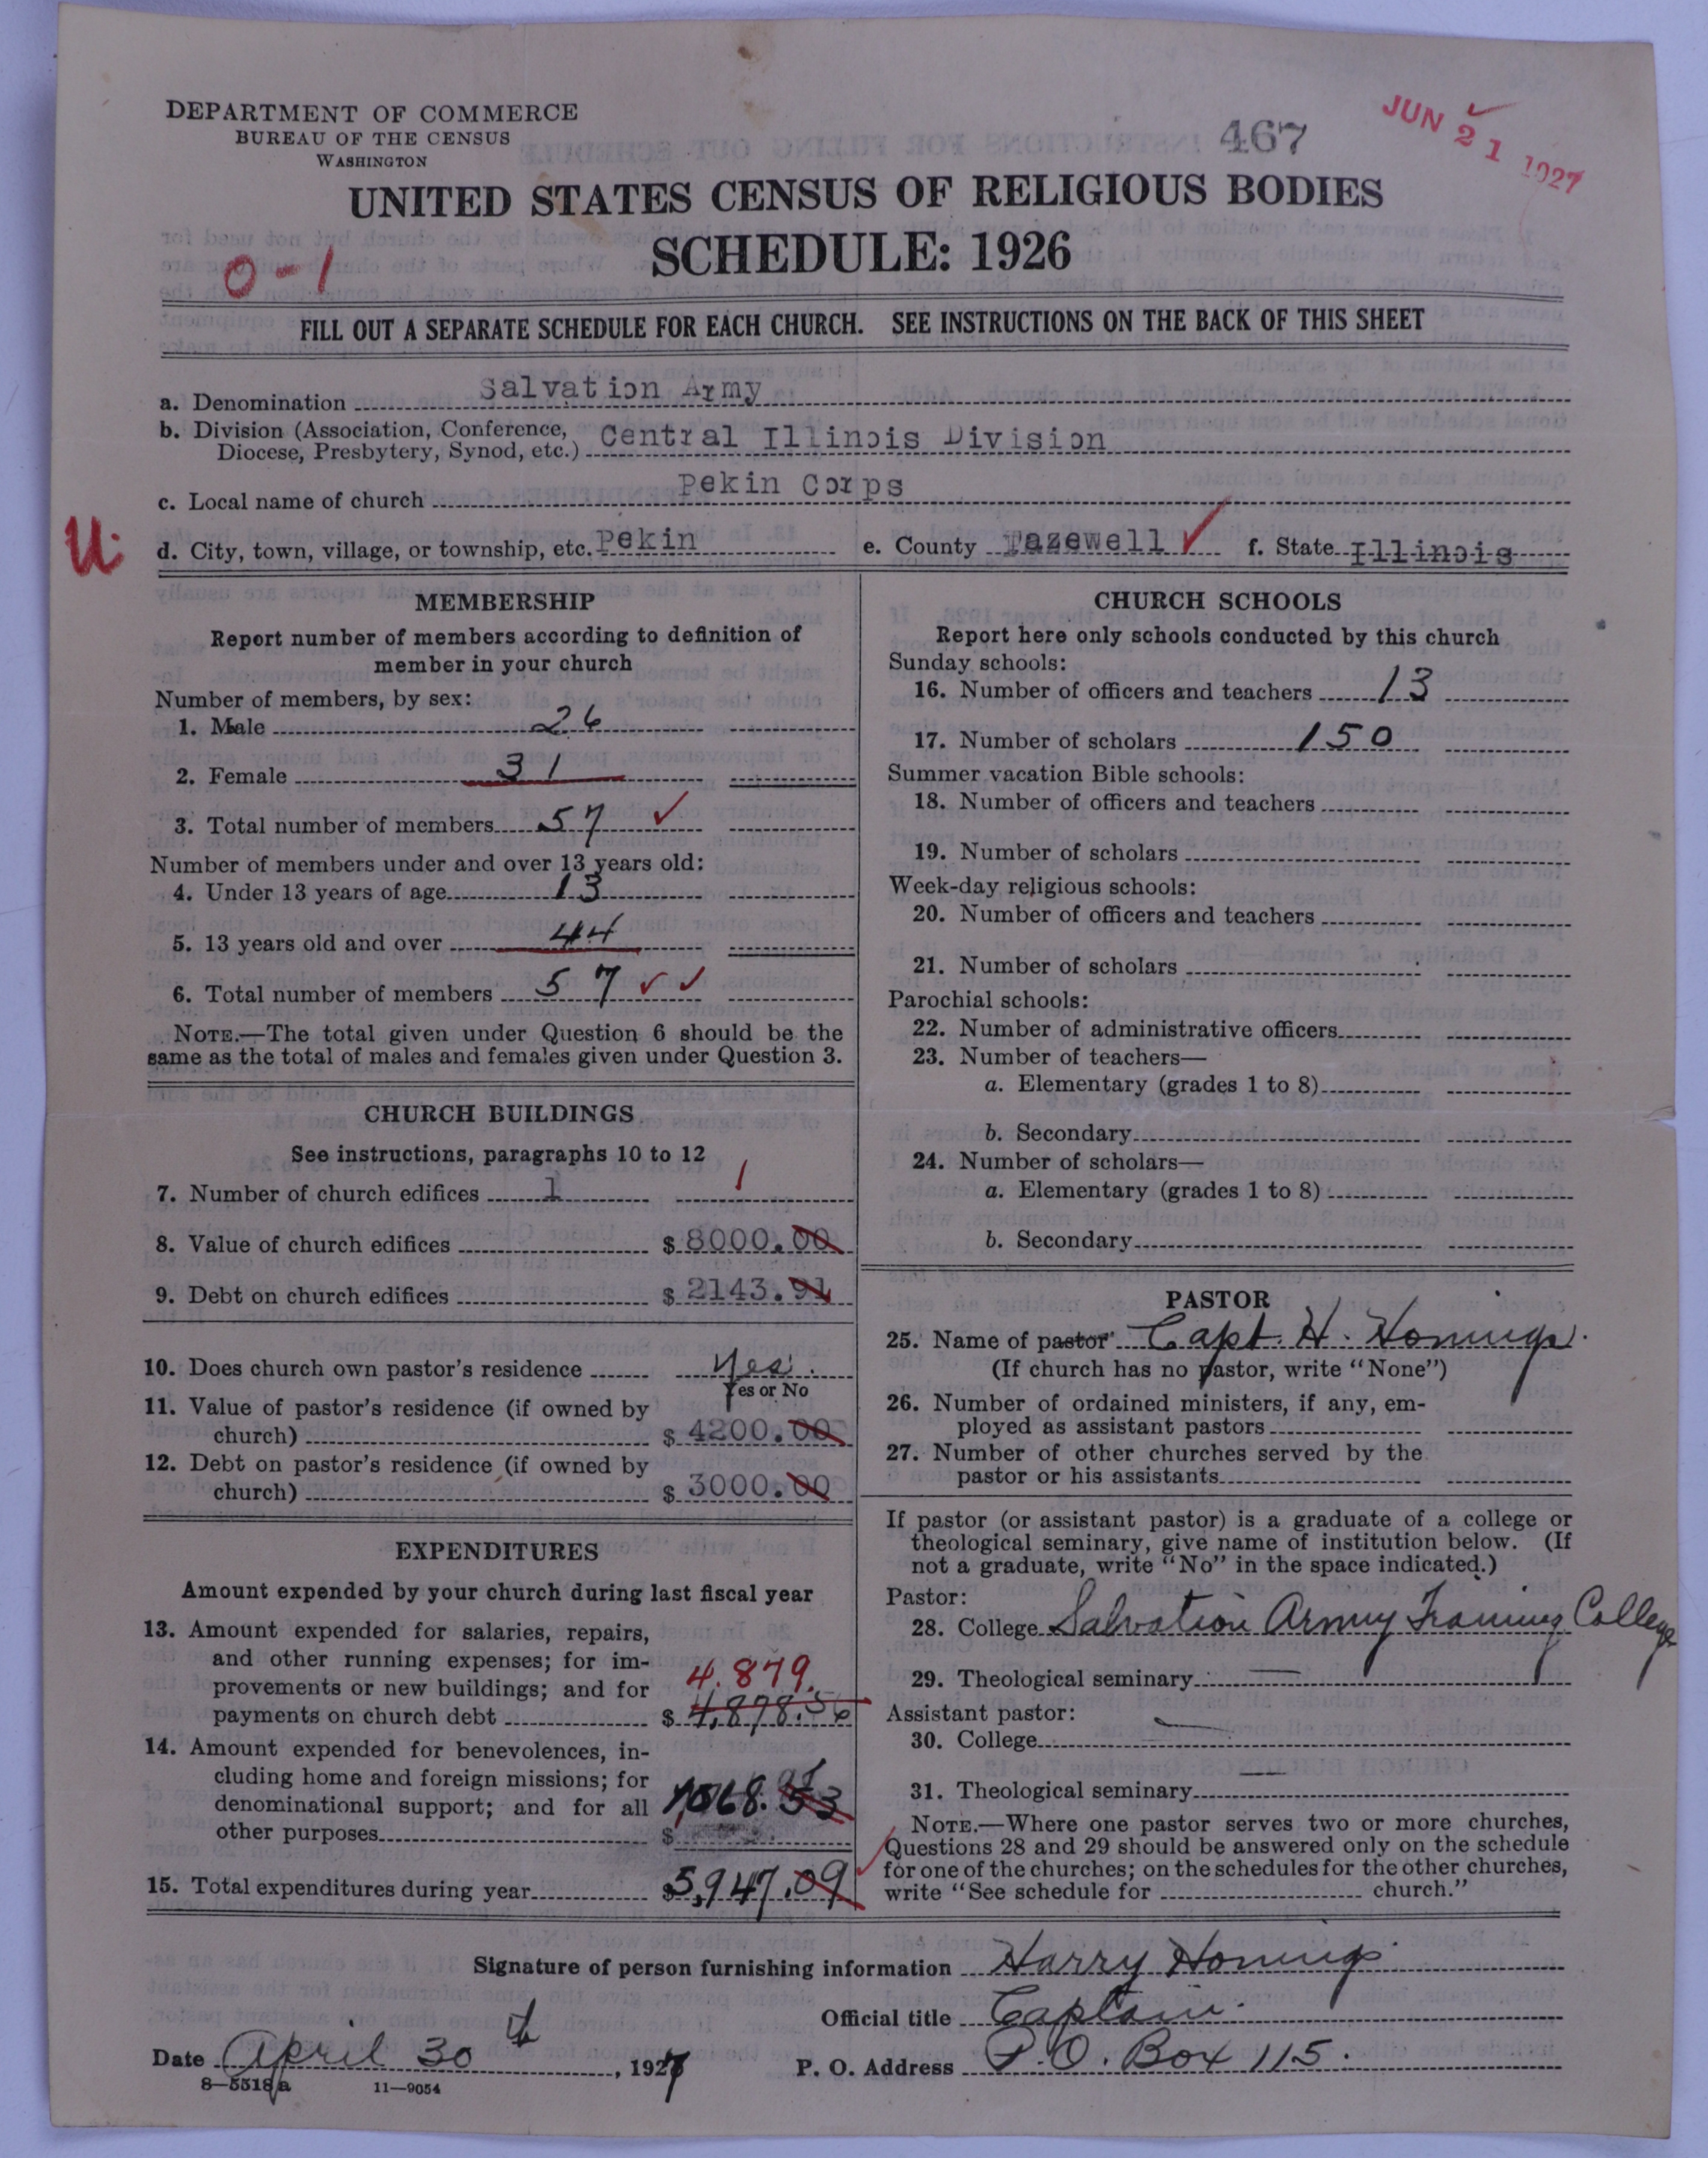 DEPARTMENT OF COMMERCE
BUREAU OF THE CENSUS
WASHINGTON
467
JUN 21 1927
UNITED STATES CENSUS OF RELIGIOUS BODIES
SCHEDULE: 1926
0-1
FILL OUT A SEPARATE SCHEDULE FOR EACH CHURCH. SEE INSTRUCTIONS ON THE BACK OF THIS SHEET
a. Denomination Salvation Army
b. Division (Association, Conference, Diocese, Presbytery, Synod, etc.) Central Illinois Division
c. Local name of church Pekin Corps
U.
d. City, town, village, or township, etc. Pekin e. County Tazewell ✓ f. State Illinois
MEMBERSHIP
Report number of members according to definition of
member in your church
Number of members, by sex:
1. Male 26
2. Female 31
3. Total number of members 57 ✓
Number of members under and over 13 years old:
4. Under 13 years of age 13
5. 13 years old and over 44
6. Total number of members 57 ✓ ✓
NOTE.—The total given under Question 6 should be the
same as the total of males and females given under Question 3.
CHURCH BUILDINGS
See instructions, paragraphs 10 to 12
7. Number of church edifices 1 1
8. Value of church edifices $ 8000.00
9. Debt on church edifices $ 2143.91
10. Does church own pastor's residence Yes.
Yes or No
11. Value of pastor's residence (if owned by
church) $ 4200.00
12. Debt on pastor's residence (if owned by
church) $ 3000.00
EXPENDITURES
Amount expended by your church during last fiscal year
13. Amount expended for salaries, repairs,
and other running expenses; for im-
provements or new buildings; and for 4.879.
payments on church debt $ 4,878.56
14. Amount expended for benevolences, in-
cluding home and foreign missions; for
denominational support; and for all 1,068.53
other purposes $
15. Total expenditures during year $ 5,947.09
CHURCH SCHOOLS
Report here only schools conducted by this church
Sunday schools:
16. Number of officers and teachers 13
17. Number of scholars 150
Summer vacation Bible schools:
18. Number of officers and teachers
19. Number of scholars
Week-day religious schools:
20. Number of officers and teachers
21. Number of scholars
Parochial schools:
22. Number of administrative officers
23. Number of teachers—
a. Elementary (grades 1 to 8)
b. Secondary
24. Number of scholars—
a. Elementary (grades 1 to 8)
b. Secondary
PASTOR
25. Name of pastor Capt. H.
(If church has no pastor, write "None")
26. Number of ordained ministers, if any, em-
ployed as assistant pastors
27. Number of other churches served by the
pastor or his assistants
If pastor (or assistant pastor) is a graduate of a college or
theological seminary, give name of institution below. (If
not a graduate, write "No" in the space indicated.)
Pastor:
28. College Salvation Army Training College
29. Theological seminary —
Assistant pastor:
30. College —
31. Theological seminary —
NOTE.—Where one pastor serves two or more churches,
Questions 28 and 29 should be answered only on the schedule
for one of the churches; on the schedules for the other churches,
write "See schedule for church."
Signature of person furnishing information Harry
Official title Captain.
Date April 30th, 1927 P. O. Address P.O. Box 115.
8—5518a 11—9054